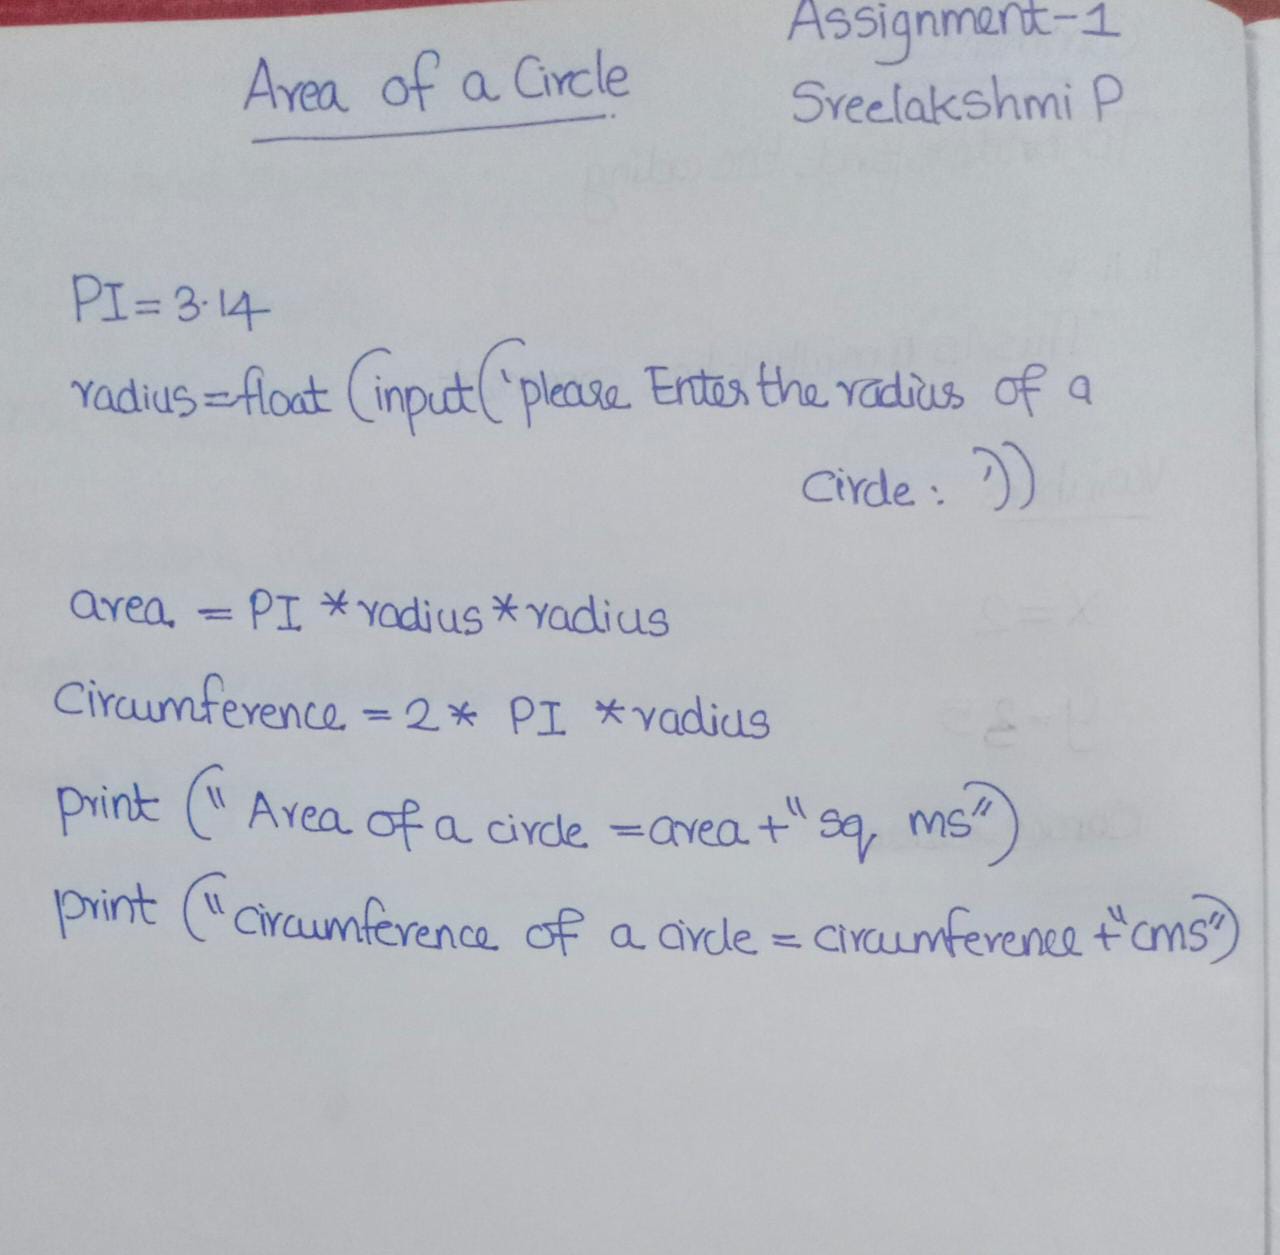 Assignment-1
Area of a Circle
Sreelakshmi P
PI = 3.14
radius = float (input ('please Enter the radius of a
circle: '))
area = PI * radius * radius
Circumference = 2 * PI * radius
print (" Area of a circle = area + " sq ms")
print ("circumference of a circle = circumference + "cms")